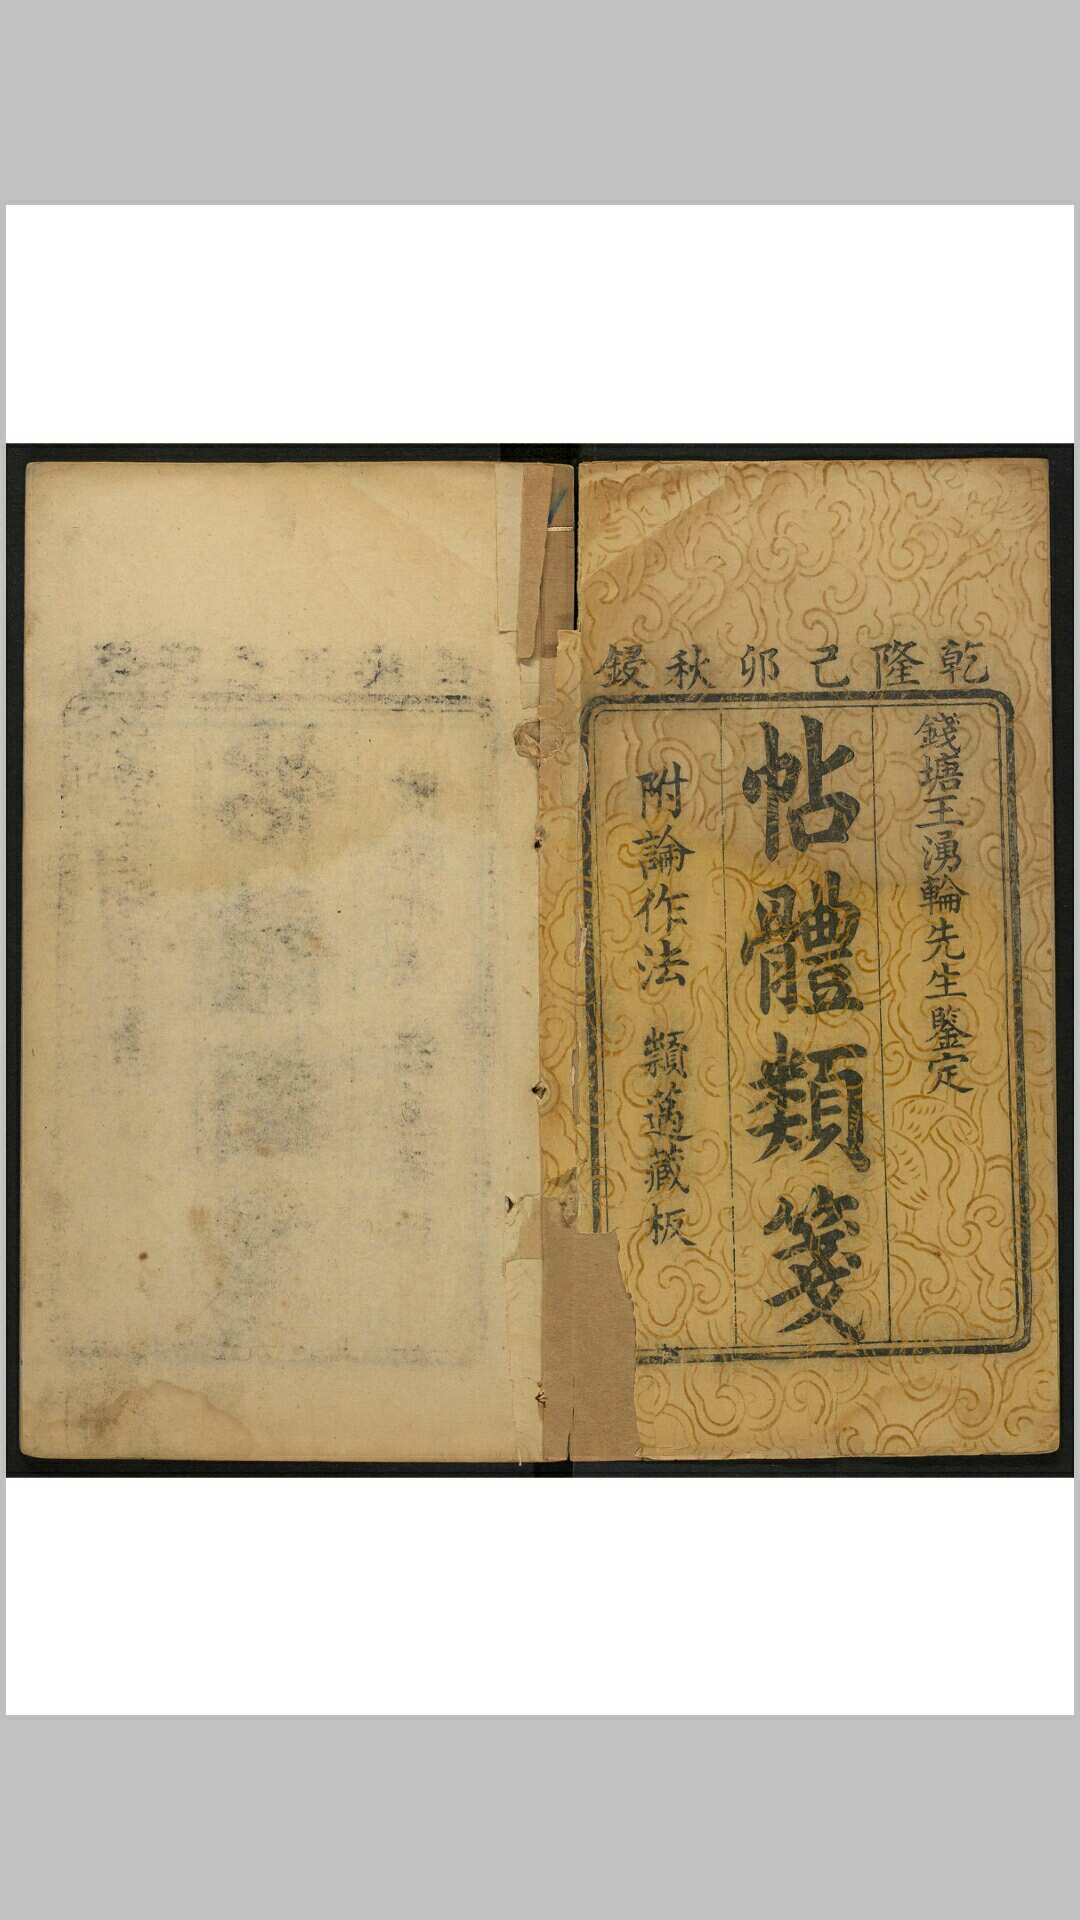 乾隆己卯秋鋟
錢塘王湧輪先生鑒定
帖體類箋
附論作法 類薖藏板